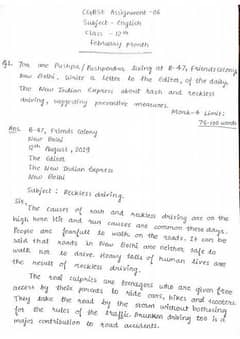 CGBSE Assignment -06
Subject - English
Class - 12th
February Month
Q1. You are Pushpa/Pushpendra living at B-47, Friends Colony
New Delhi. Write a letter to the Editor, of the daily
The New Indian Express about rash and reckless
driving, suggesting preventive measures.
Mark-4 Limit:
75-100 words
Ans. B-47, Friends Colony
New Delhi
12th August, 2019
The Editor
The New Indian Express
New Delhi
Subject: Reckless driving.
Sir,
The causes of rash and reckless driving are on the
high now. Hit and run causes are common these days.
People are fearfull to walk on the roads. It can be
said that roads in New Delhi are neither safe to
walk not to drive. Heavy tolls of human lives are
the result of reckless driving.
The real culprics are teenagers who are given free
access by their parents to ride cars, bikes and scooters
They take the road by the storm without bothering
for the rules of the traffic. Drunken driving too is a
major contribution to road accidents.